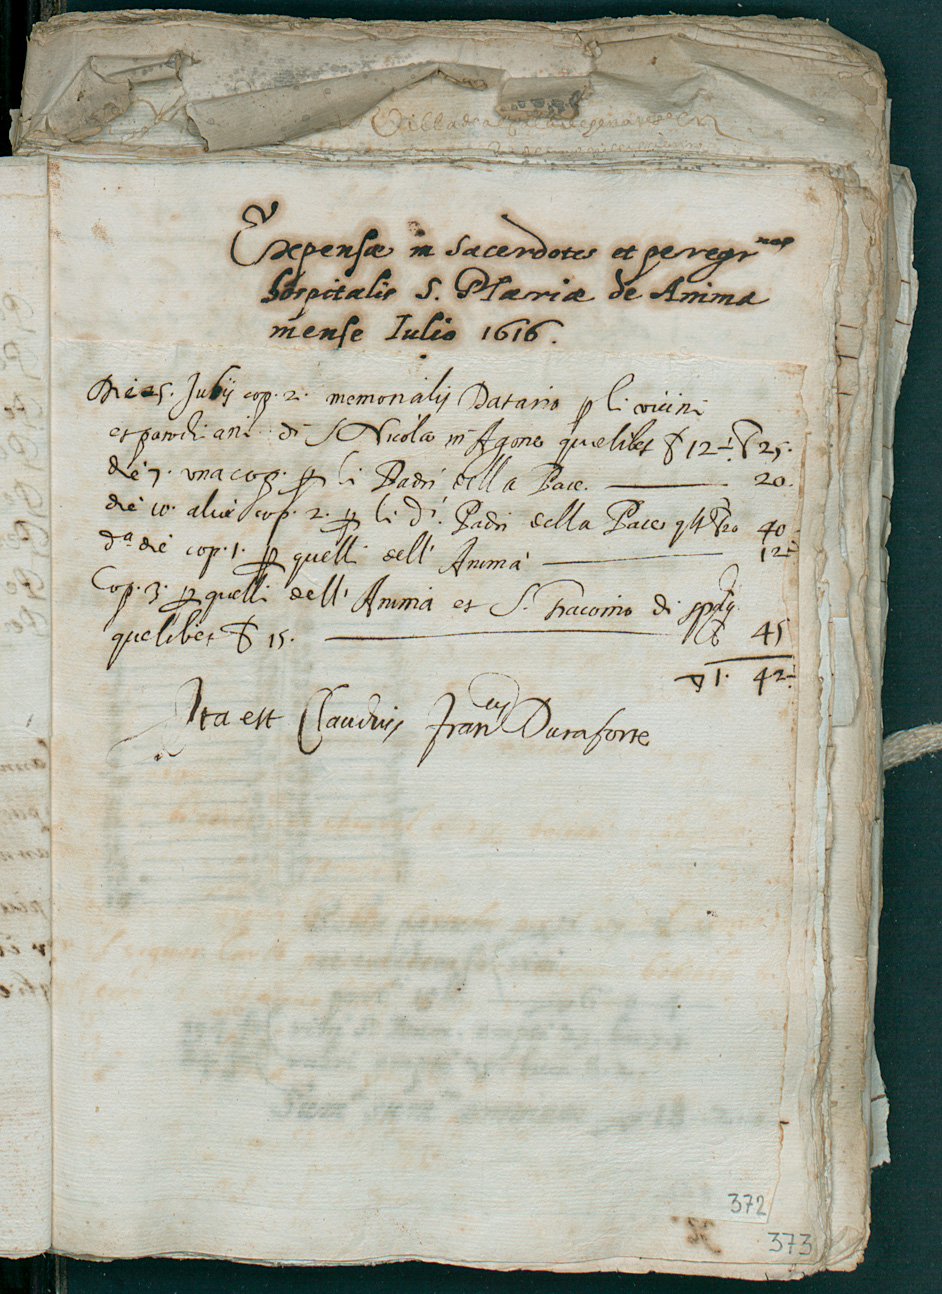 Expensæ in Sacerdotes et peregr nos
hospitalis S. Mariæ de Anima
mense Iulio 1616.
Die 25. Julij cop. 2. memorialis Datario p li vicini
et parochiani di S Nicola in Agone quelibet 12 25.
die 7. una cop. p li Padri della Pace. 20.
die 10. aliæ cop. 2. p li d.i Padri della Pace 40
d.a die cop. 1. p quelli dell' Anima 12
Cop. 3. p quelli dell' Anima et S. Giacomo di
quelibet 15. 45
1. 42
Ita est Claudius Fran cus Duraforte
372
373